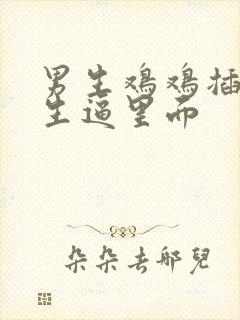 男生鸡鸡插
生逼里而
朵朵去哪兒